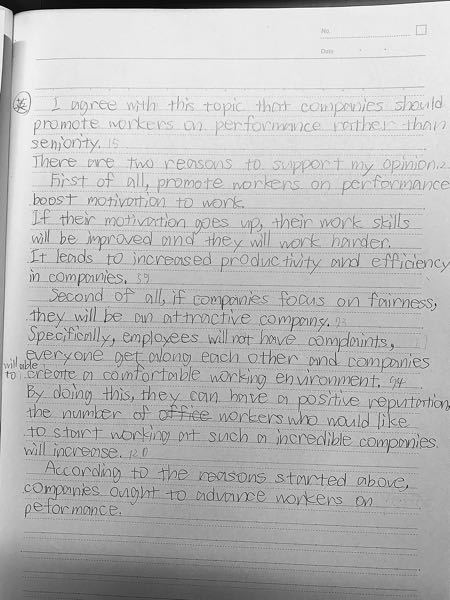 No.
Date
英 I agree with this topic that companies should
promote workers on performance rather than
seniority. 15
There are two reasons to support my opinion.
First of all, promote workers on performance
boost motivation to work.
If their motivation goes up, their work skills
will be improved and they will work harder.
It leads to increased productivity and efficiency
in companies. 59
Second of all, if companies focus on fairness,
they will be an attractive company.
Specifically, employees will not have complaints,
everyone get along each other and companies
will able to create a comfortable working environment. 94
By doing this, they can have a positive reputation,
the number of office workers who would like
to start working at such a incredible companies
will increase. 120
According to the reasons started above,
companies ought to advance workers on
peformance.